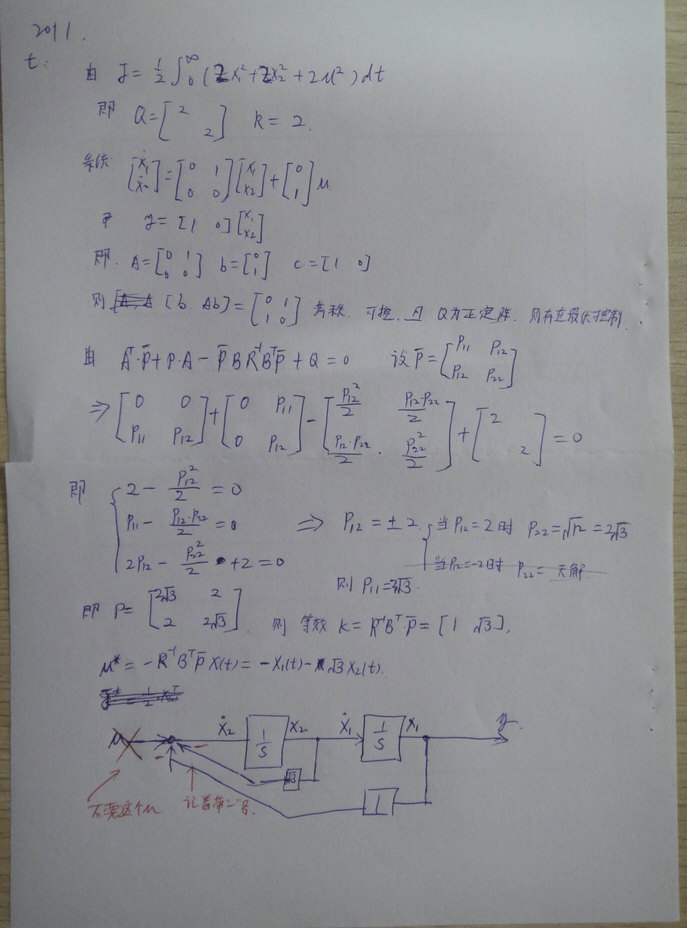 2011.
七:
由 J = 1/2 ∫₀^∞ (2x₁²+2x₂²+2u²)dt
即 Q=[2; 2] R = 2.
系统 [ẋ₁; ẋ₂]=[0 1; 0 0][x₁; x₂]+[0; 1]u
y=[1 0][x₁; x₂]
即. A=[0 1; 0 0] b=[0; 1] c=[1 0]
则 [b. Ab]=[0 1; 1 0] 满秩. 可控. 且 Q为正定阵. 则存在最优控制.
由 Aᵀ·P̄+P·A−P̄BR⁻¹BᵀP̄+Q=0 设 P̄=[P₁₁ P₁₂; P₁₂ P₂₂]
⇒[0 0; P₁₁ P₁₂]+[0 P₁₁; 0 P₁₂]−[P₁₂²/2 P₁₂·P₂₂/2; P₁₂·P₂₂/2 P₂₂²/2]+[2; 2]=0
即 {2−P₁₂²/2=0
P₁₁−P₁₂·P₂₂/2=0 ⇒ P₁₂=±2 {当P₁₂=2时 P₂₂=√12=2√3
2P₁₂−P₂₂²/2+2=0 当P₁₂=−2时 P₂₂= 无解.
则 P₁₁=2√3.
即 P=[2√3 2; 2 2√3]. 则 等效 K=R⁻¹Bᵀ·P̄=[1 √3],
u*=−R⁻¹BᵀP̄X(t)=−x₁(t)−√3x₂(t).
u ẋ₂ 1/S x₂ ẋ₁ 1/S x₁ y
− − √3
不要这个u 记着带"−"号. 1